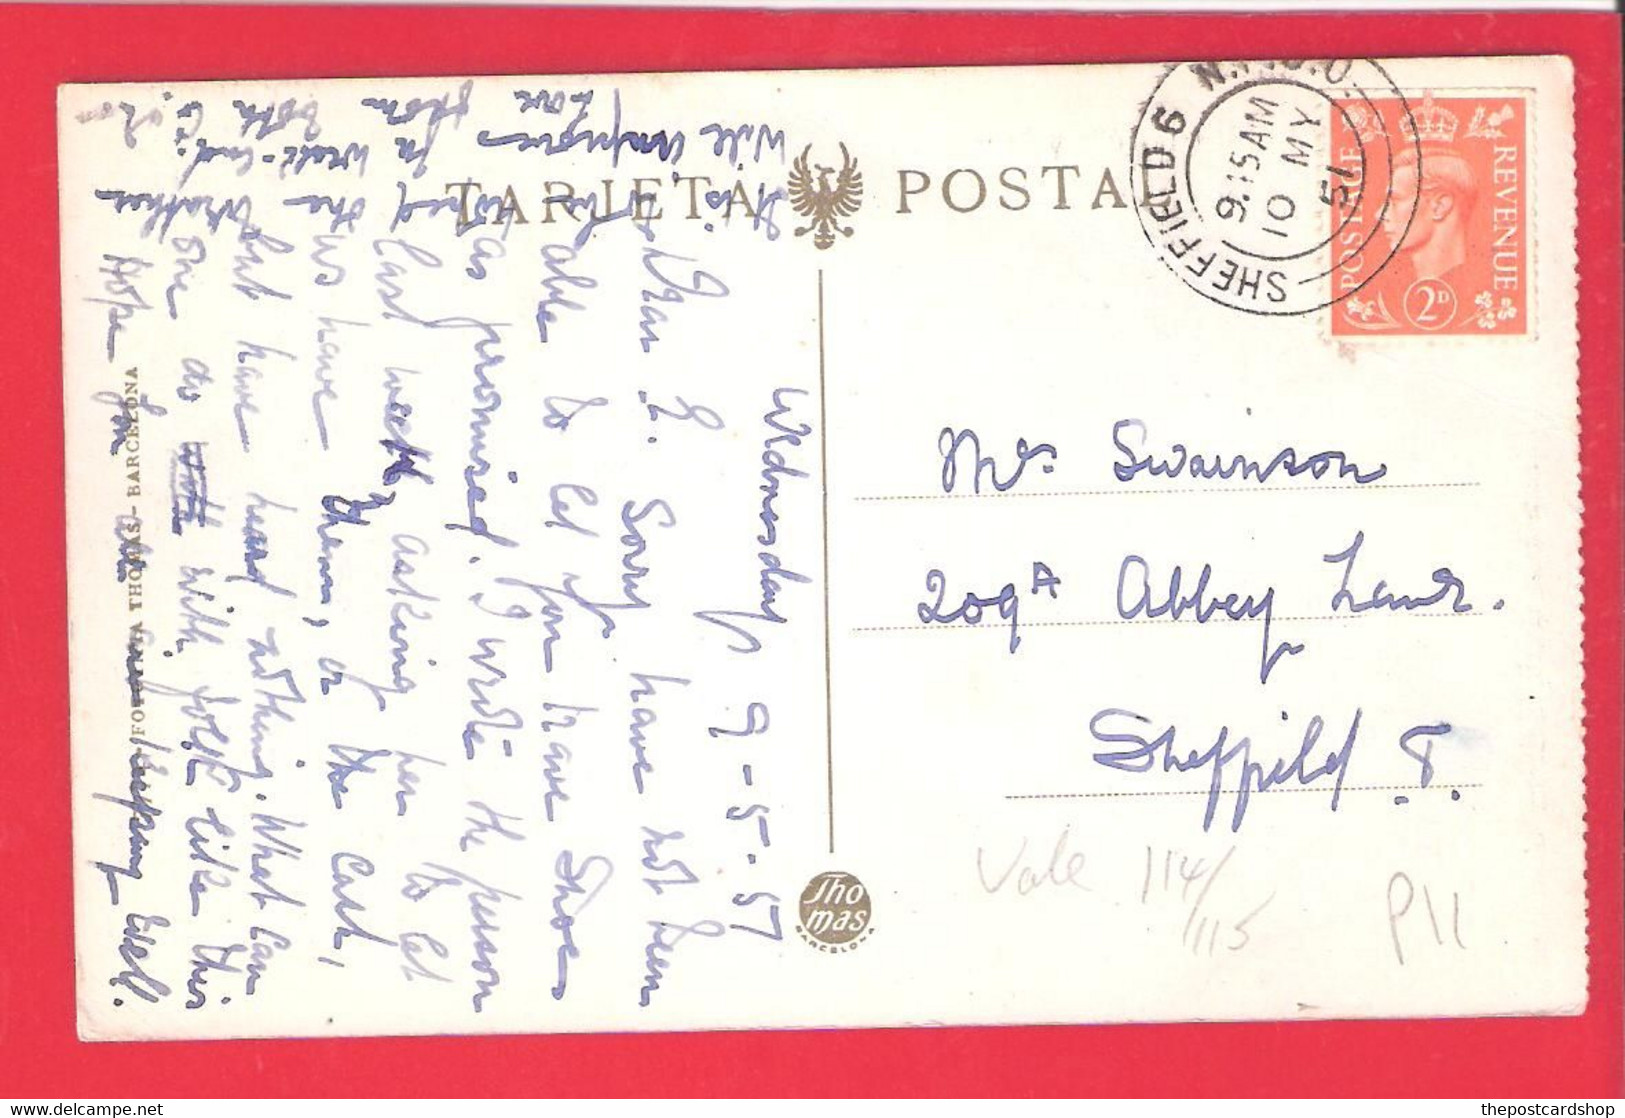 TARJETA POSTAL
SHEFFIELD 6
9.15 AM
10 MY
51
POSTAGE
REVENUE
2D
Wednesday 9-5-51
Dear L. Sorry have not been
able to let you have Shoes
as promised. I wrote the person
last week, asking her to let
us have them, or the cash,
but have heard nothing. What can
one do with folk like this
Hope you are keeping well.
Will
Love
FOTO THOMAS - BARCELONA
Thomas
BARCELONA
Mrs Swainson
209A Abbey Lane.
Sheffield 8.
Vale 114/
115
P11
© thepostcardshop